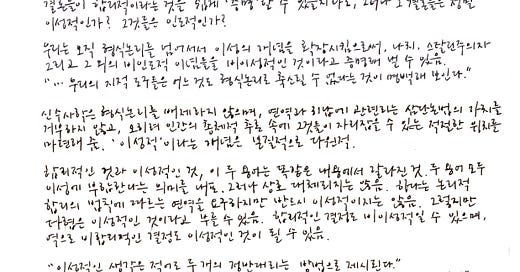 결론들이 합리적이라는 것은 쉽게 "증명"할 수 있을지라도, 그러나 그 결론들은 정말
이성적인가? 그것들은 인도적인가?
우리는 오직 형식논리를 넘어서서 이성의 개념을 확장시킴으로써, 나치, 스탈린주의자
그리고 그 외의 비인도적 이념들을 비이성적인 것이라고 증명해 낼 수 있음.
"… 우리의 지적 도구들은 어느 것도 형식논리로 축소될 수 없다는 것이 명백해 보인다."
신수사학은 형식논리를 배제하지 않으며, 연역과 귀납에 관련되는 삼단논법의 가치를
거부하지 않고, 오히려 인간의 총체적 추론 속에 그것들이 자리잡을 수 있는 적절한 위치를
마련해 줌. '이성적'이라는 개념은 본질적으로 다원적.
합리적인 것과 이성적인 것, 이 두 용어는 똑같은 내용에서 갈라진 것. 두 용어 모두
이성에 부합한다는 의미를 내포. 그러나 상호 대체되지는 않음. 하나는 논리적
합리의 법칙에 따르는 연역을 요구하지만 반드시 이성적이지는 않음. 그렇지만
다형은 이성적인 것이라고 부를 수 있음. 합리적인 결정도 비이성적일 수 있으며,
역으로 비합리적인 결정도 이성적인 것이 될 수 있음.
"이성적인 생각은 적어도 두 개의 정반대되는 방법으로 제시된다."